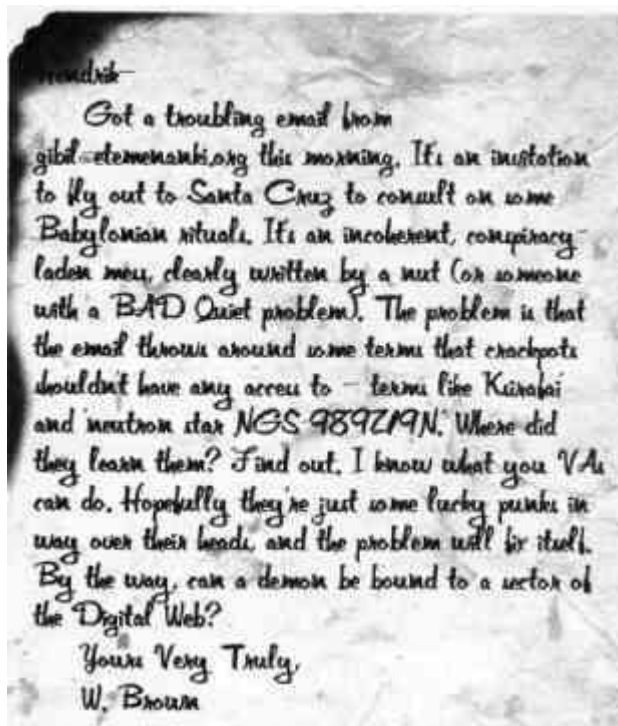 Got a troubling email from
gibil-etemenanki.org this morning. It's an invitation
to fly out to Santa Cruz to consult on some
Babylonian rituals. It's an incoherent, conspiracy-
laden mess, clearly written by a nut (or someone
with a BAD Quiet problem). The problem is that
the email throws around some terms that crackpots
shouldn't have any access to – terms like Ksirafai
and 'neutron star NGS 989Z19N.' Where did
they learn them? Find out. I know what you VAs
can do. Hopefully they're just some lucky punks in
way over their heads, and the problem will fix itself.
By the way, can a demon be bound to a sector of
the Digital Web?
Yours Very Truly,
W. Brown